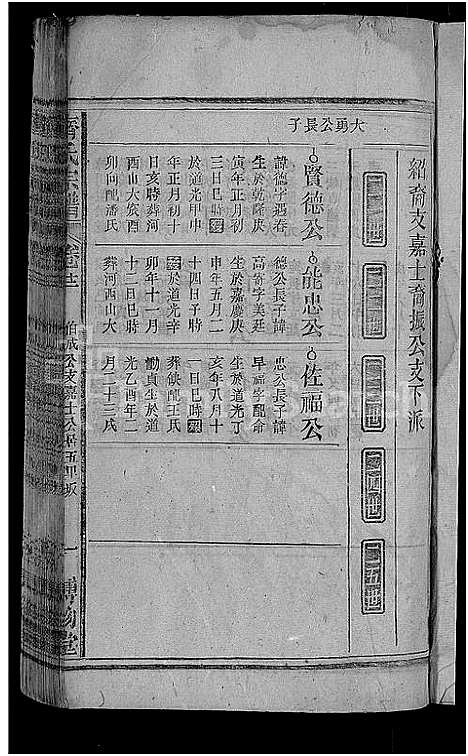 紹裔支嘉士裔振公支下派
大勇公長子
賢德公
諱德字遇春
生於乾隆庚
寅年正月初
三日巳時歿
於道光甲申
年正月初十
日亥時葬河
西山大宾酉
卯向配潘氏
能忠公
德公長子諱
高奇字美廷
生於嘉慶庚
申年五月二
十四日子時
歿於道光辛
卯年十一月
十二日巳時
葬河西山大
佐福公
忠公長子諱
早福字配命
生於道光丁
亥年八月十
一日巳時歿
葬缺配王氏
勤貞生於道
光乙酉年二
月二十三戌
氏宗譜
伯誠公支嘉士公房五甲坂
一